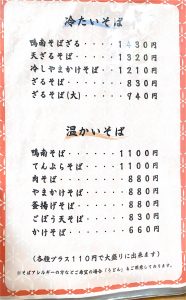 冷たいそば
鴨南そばざる・・・・1430円
天ざるそば・・・・・1320円
冷しやまかけそば・・1210円
ざるそば・・・・・・830円
ざるそば(大)・・・・940円
温かいそば
鴨南そば・・・・・・1100円
てんぷらそば・・・・1100円
肉そば・・・・・・・880円
やまかけそば・・・・880円
釜揚げそば・・・・・880円
ごぼう天そば・・・・830円
かけそば・・・・・・660円
(各種プラス110円で大盛りに出来ます)
※そばアレルギーの方などご希望の場合「うどん」もご用意しております。